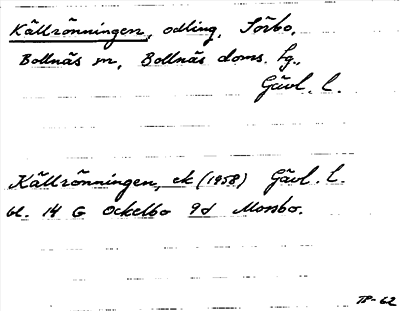 Källrönningen, odling, Sörbo,
Bollnäs sn, Bollnäs doms. tg.,
Gävl. l.
Källrönningen, ek (1958) Gävl. l.
bl. 14 G Ockelbo 9d Mossbo.
TP-62